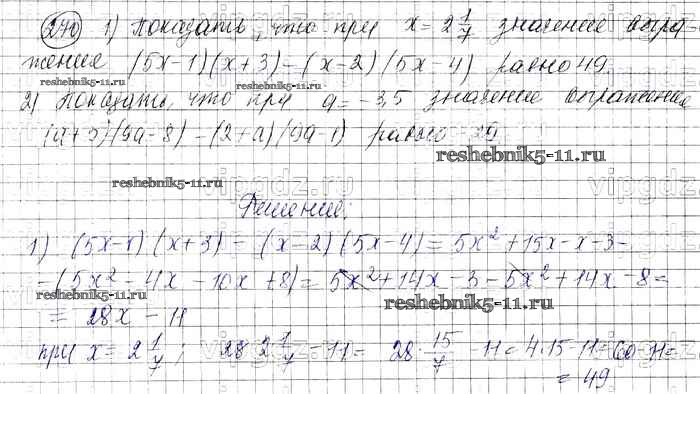 270 1) Показать, что при x = 2 1/7 значение выра-
жение (5x-1)(x+3)-(x-2)(5x-4) равно 49.
reshebnik5-11.ru
2) Показать, что при a = -3,5 значение выражение
(a+3)(9a-8)-(2+a)(9a-1) равно -29
reshebnik5-11.ru
reshebnik5-11.ru
vipgdz.ru
Решение:
1) (5x-1)(x+3) - (x-2)(5x-4) = 5x² + 15x - x - 3 -
- (5x² - 4x - 10x + 8) = 5x² + 14x - 3 - 5x² + 14x - 8 =
reshebnik5-11.ru
reshebnik5-11.ru
= 28x - 11
при x = 2 1/7; 28·2 1/7 - 11 = 28·15/7 - 11 = 4·15-11 = 60-11 =
= 49